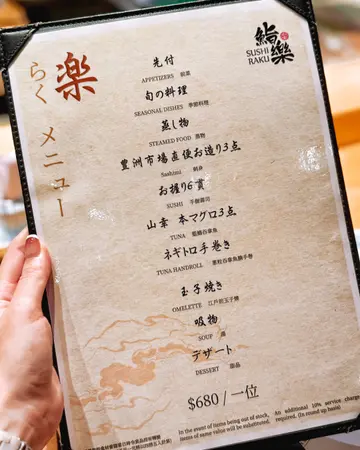 鮨樂
SUSHI
RAKU
楽
らく メニュー
先付
APPETIZERS 前菜
旬の料理
SEASONAL DISHES 季節料理
蒸し物
STEAMED FOOD 蒸物
豊洲市場直便お造り3点
Sashimi 刺身
お握り6貫
SUSHI 手握壽司
山幸 本マグロ3点
TUNA 藍鰭吞拿魚
ネギトロ手巻き
TUNA HANDROLL 蔥粒吞拿魚腩手卷
玉子焼き
OMELETTE 江戶前玉子燒
吸物
SOUP 湯
デザート
DESSERT 甜品
$680 / 一位
In the event of items being out of stock,
items of same value will be substituted.
An additional 10% service charge
required. (In round up basis)